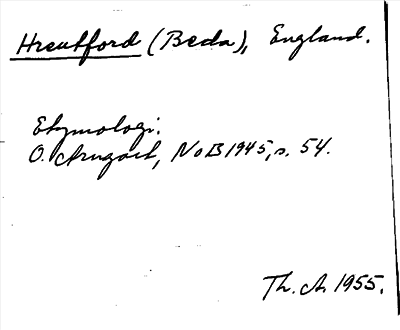 Hreutford (Beda), England.
Etymologi.
O. Arngart, NoB 1945, s. 54.
Th. A. 1955.